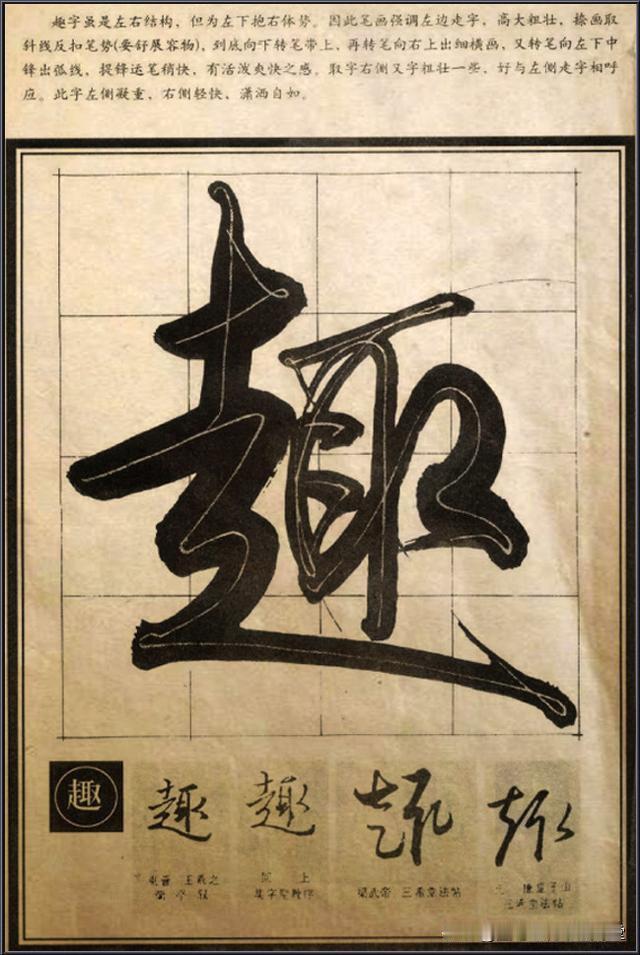 趣字虽是左右结构，但为左下抱右体势。因此笔画强调左边走字，高大粗壮，捺画取
斜线反扣笔势(要舒展容物)，到底向下转笔带上，再转笔向右上出细横画，又转笔向左下中
锋出弧线，提锋运笔稍快，有活泼爽快之感。取字右侧又字粗壮一些，好与左侧走字相呼
应。此字左侧凝重，右侧轻快，潇洒自如。
趣
趣
趣 趣 趣 趣
东晋 王羲之
兰亭叙
同上
集字圣教序
梁武帝 三希堂法帖
元
三希堂法帖